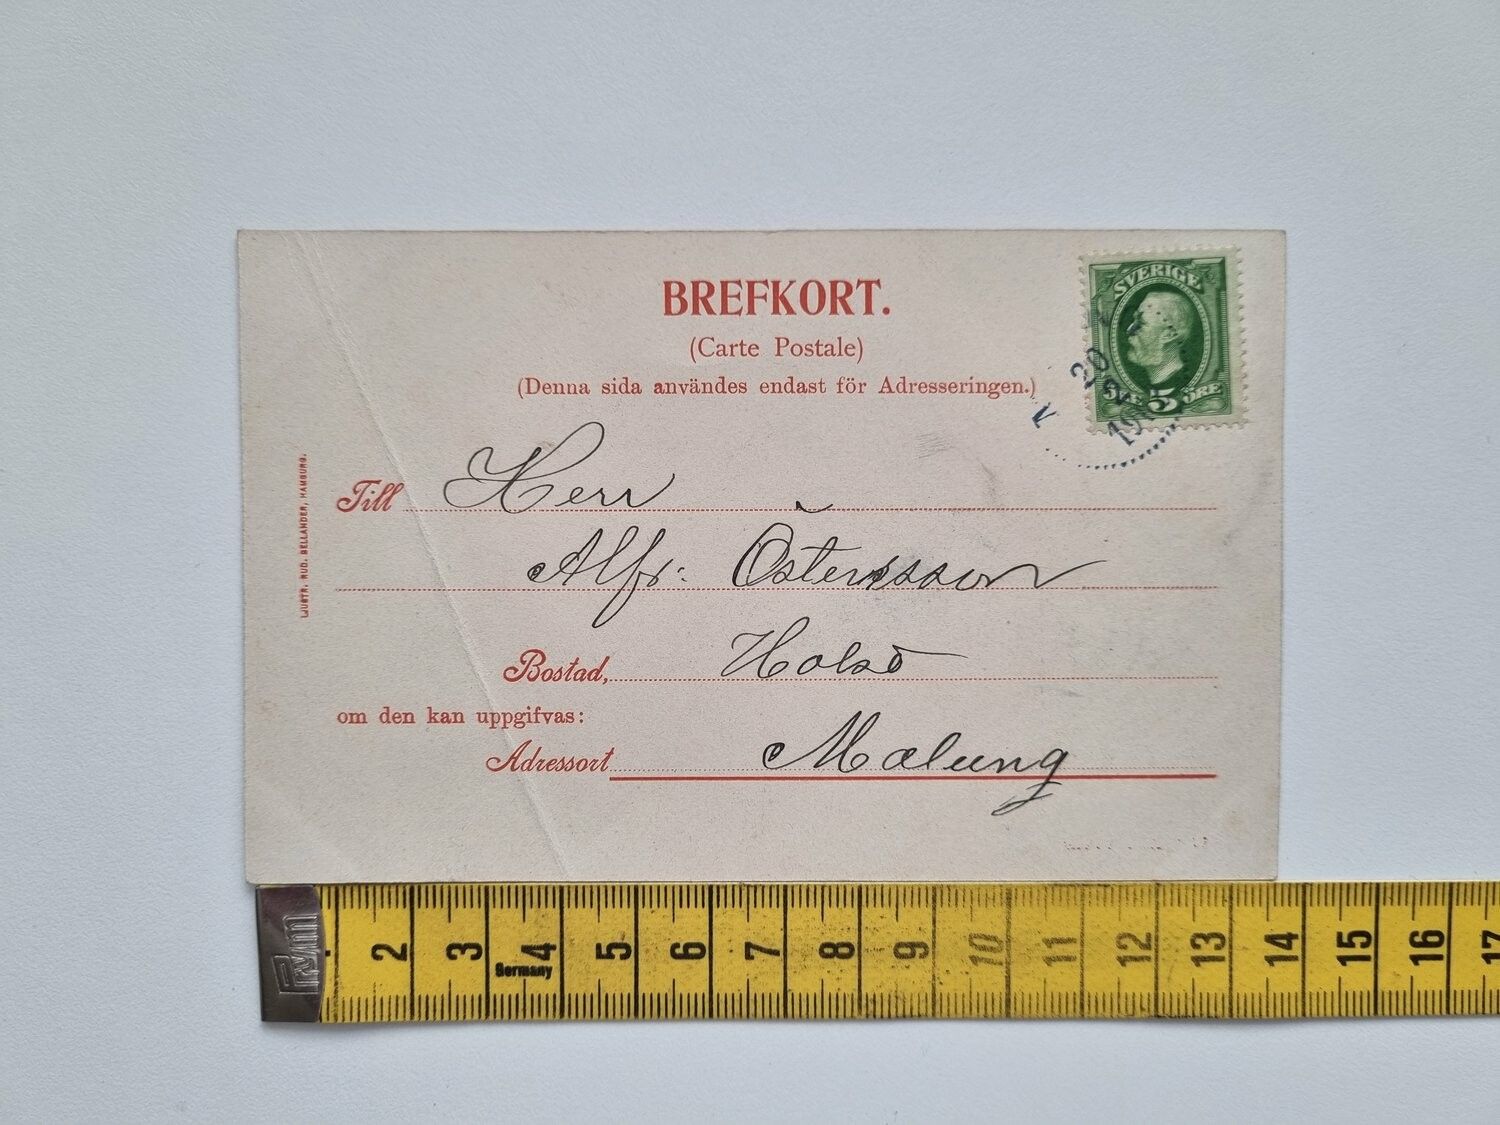 BREFKORT.
(Carte Postale)
(Denna sida användes endast för Adresseringen.)
SVERIGE
5 ÖRE
20
2
Till Herr
Alfr: Östersson
Bostad, Holsö
om den kan uppgifvas:
Adressort Malung
LJUSTR. RUD. BELLANDER, HAMBURG.
Prym
2 3 4 5 6 7 8 9 10 11 12 13 14 15 16 17
Germany